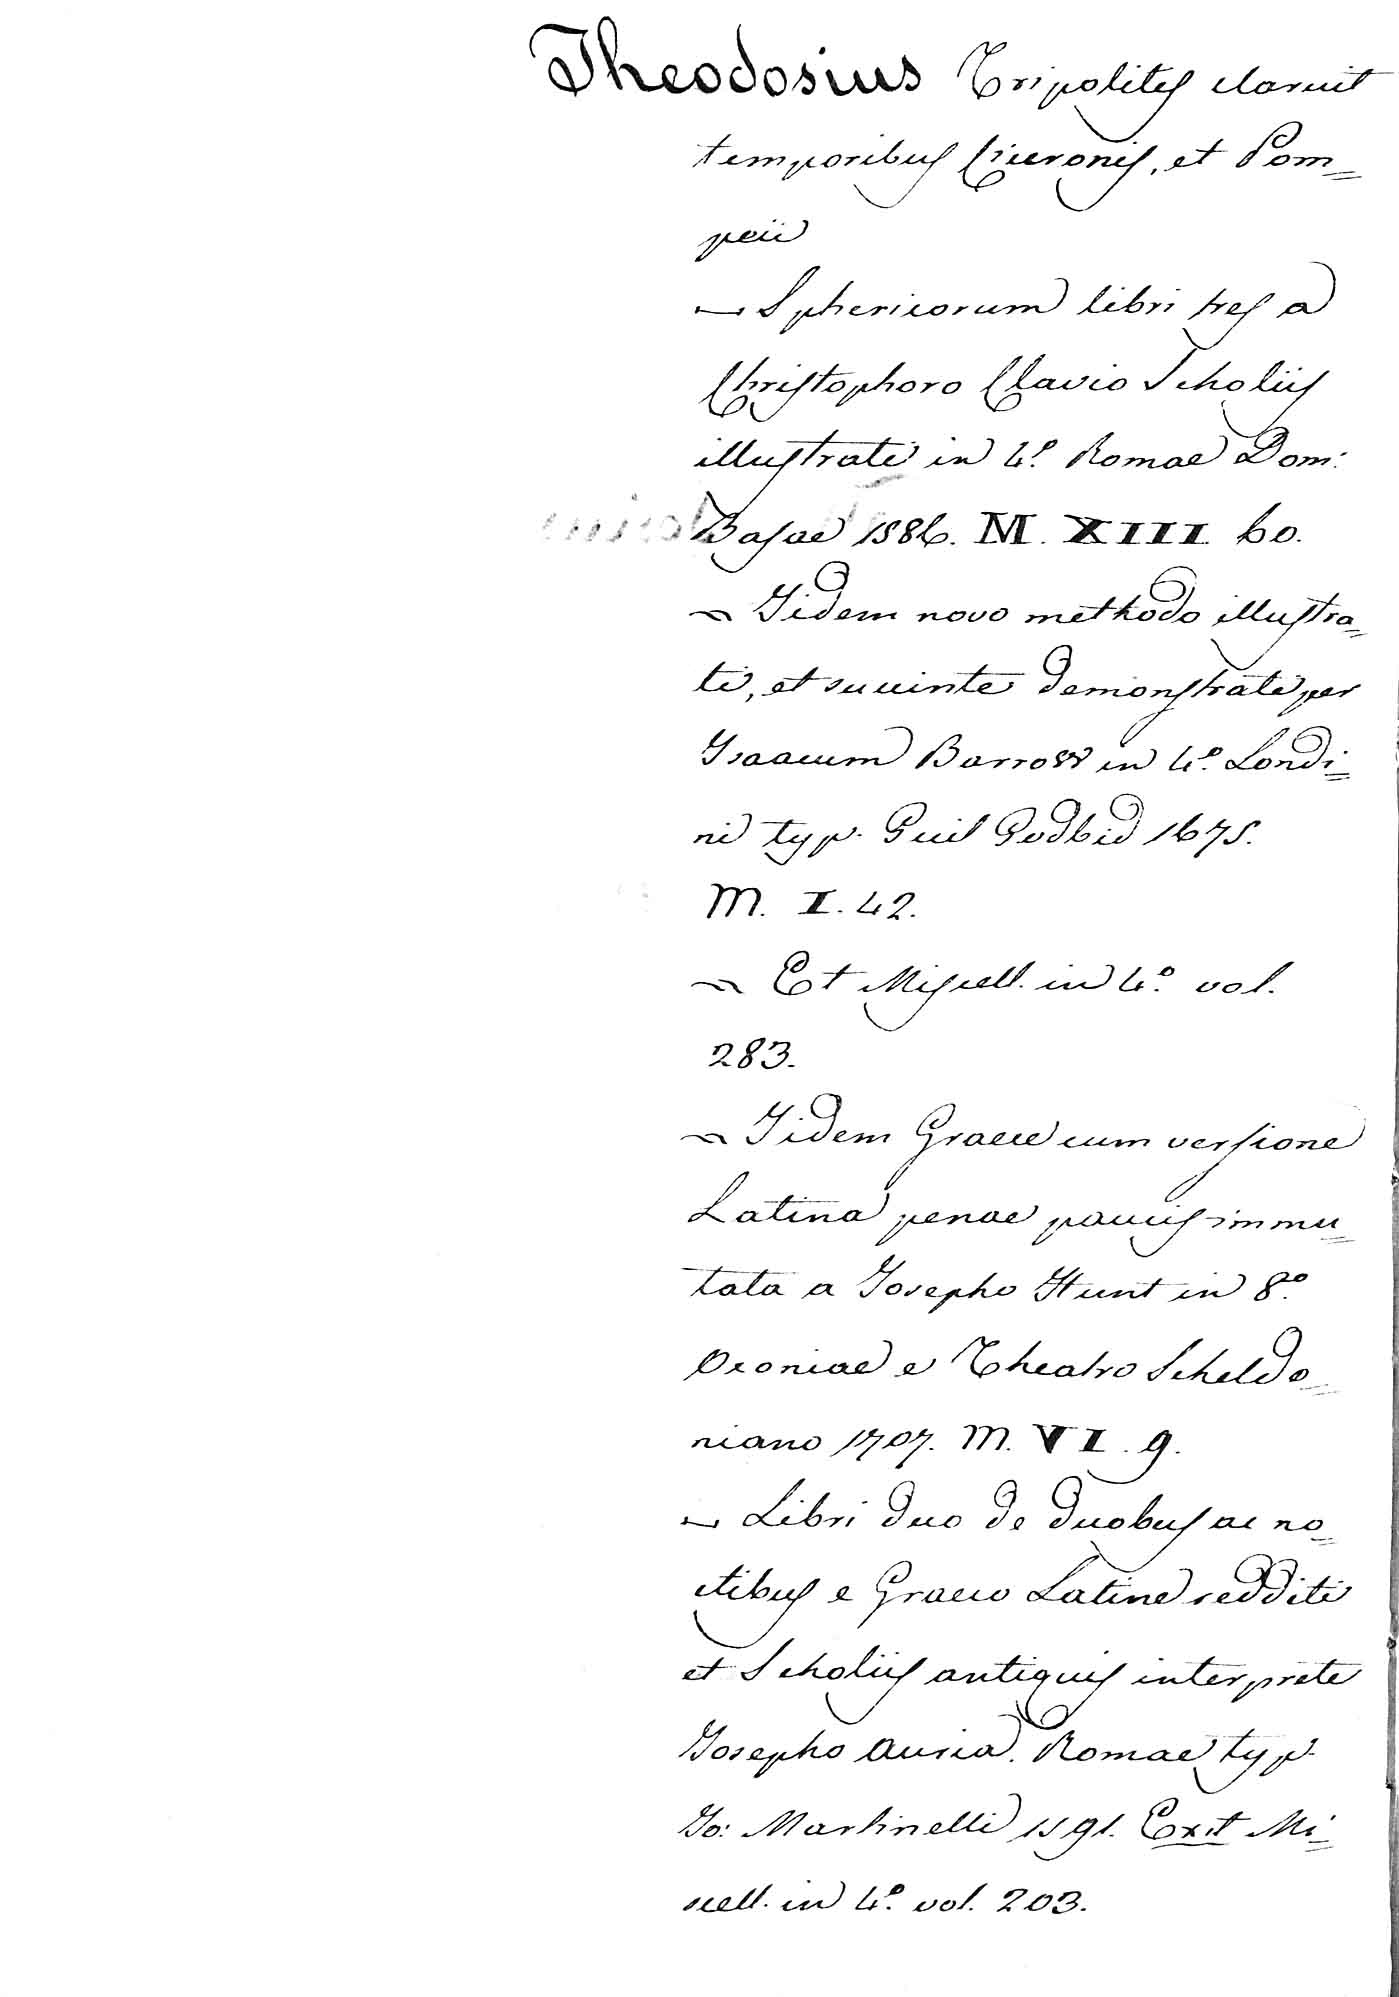 Theodosius Tripolites claruit
temporibus Ciceronis, et Pom=
peii
— Sphericorum libri tres a
Christophoro Clavio Scholiis
illustrati in 4.º Romae Dom:
Basae 1586. M. XIII 60.
~ Iidem novo methodo illustra=
ti, et succinte demonstrati per
Isaacum Barrow in 4.º Londi=
ni typ. Guil Godbid 1675.
M. I. 42.
~ Et Miscell. in 4.º vol.
283.
~ Iidem Graece cum versione
Latina penae paucis immu=
tata a Iosepho Hunt in 8.º
Oxoniae e Theatro Scheldo=
niano 1707. M. VI. 9.
— Libri duo de duobus ac no=
ctibus e Graeco Latine redditi
et Scholiis antiquis interprete
Iosepho Auria. Romae typ.
Io: Martinelli 1591. Exit Mi=
scell. in 4.º vol. 203.